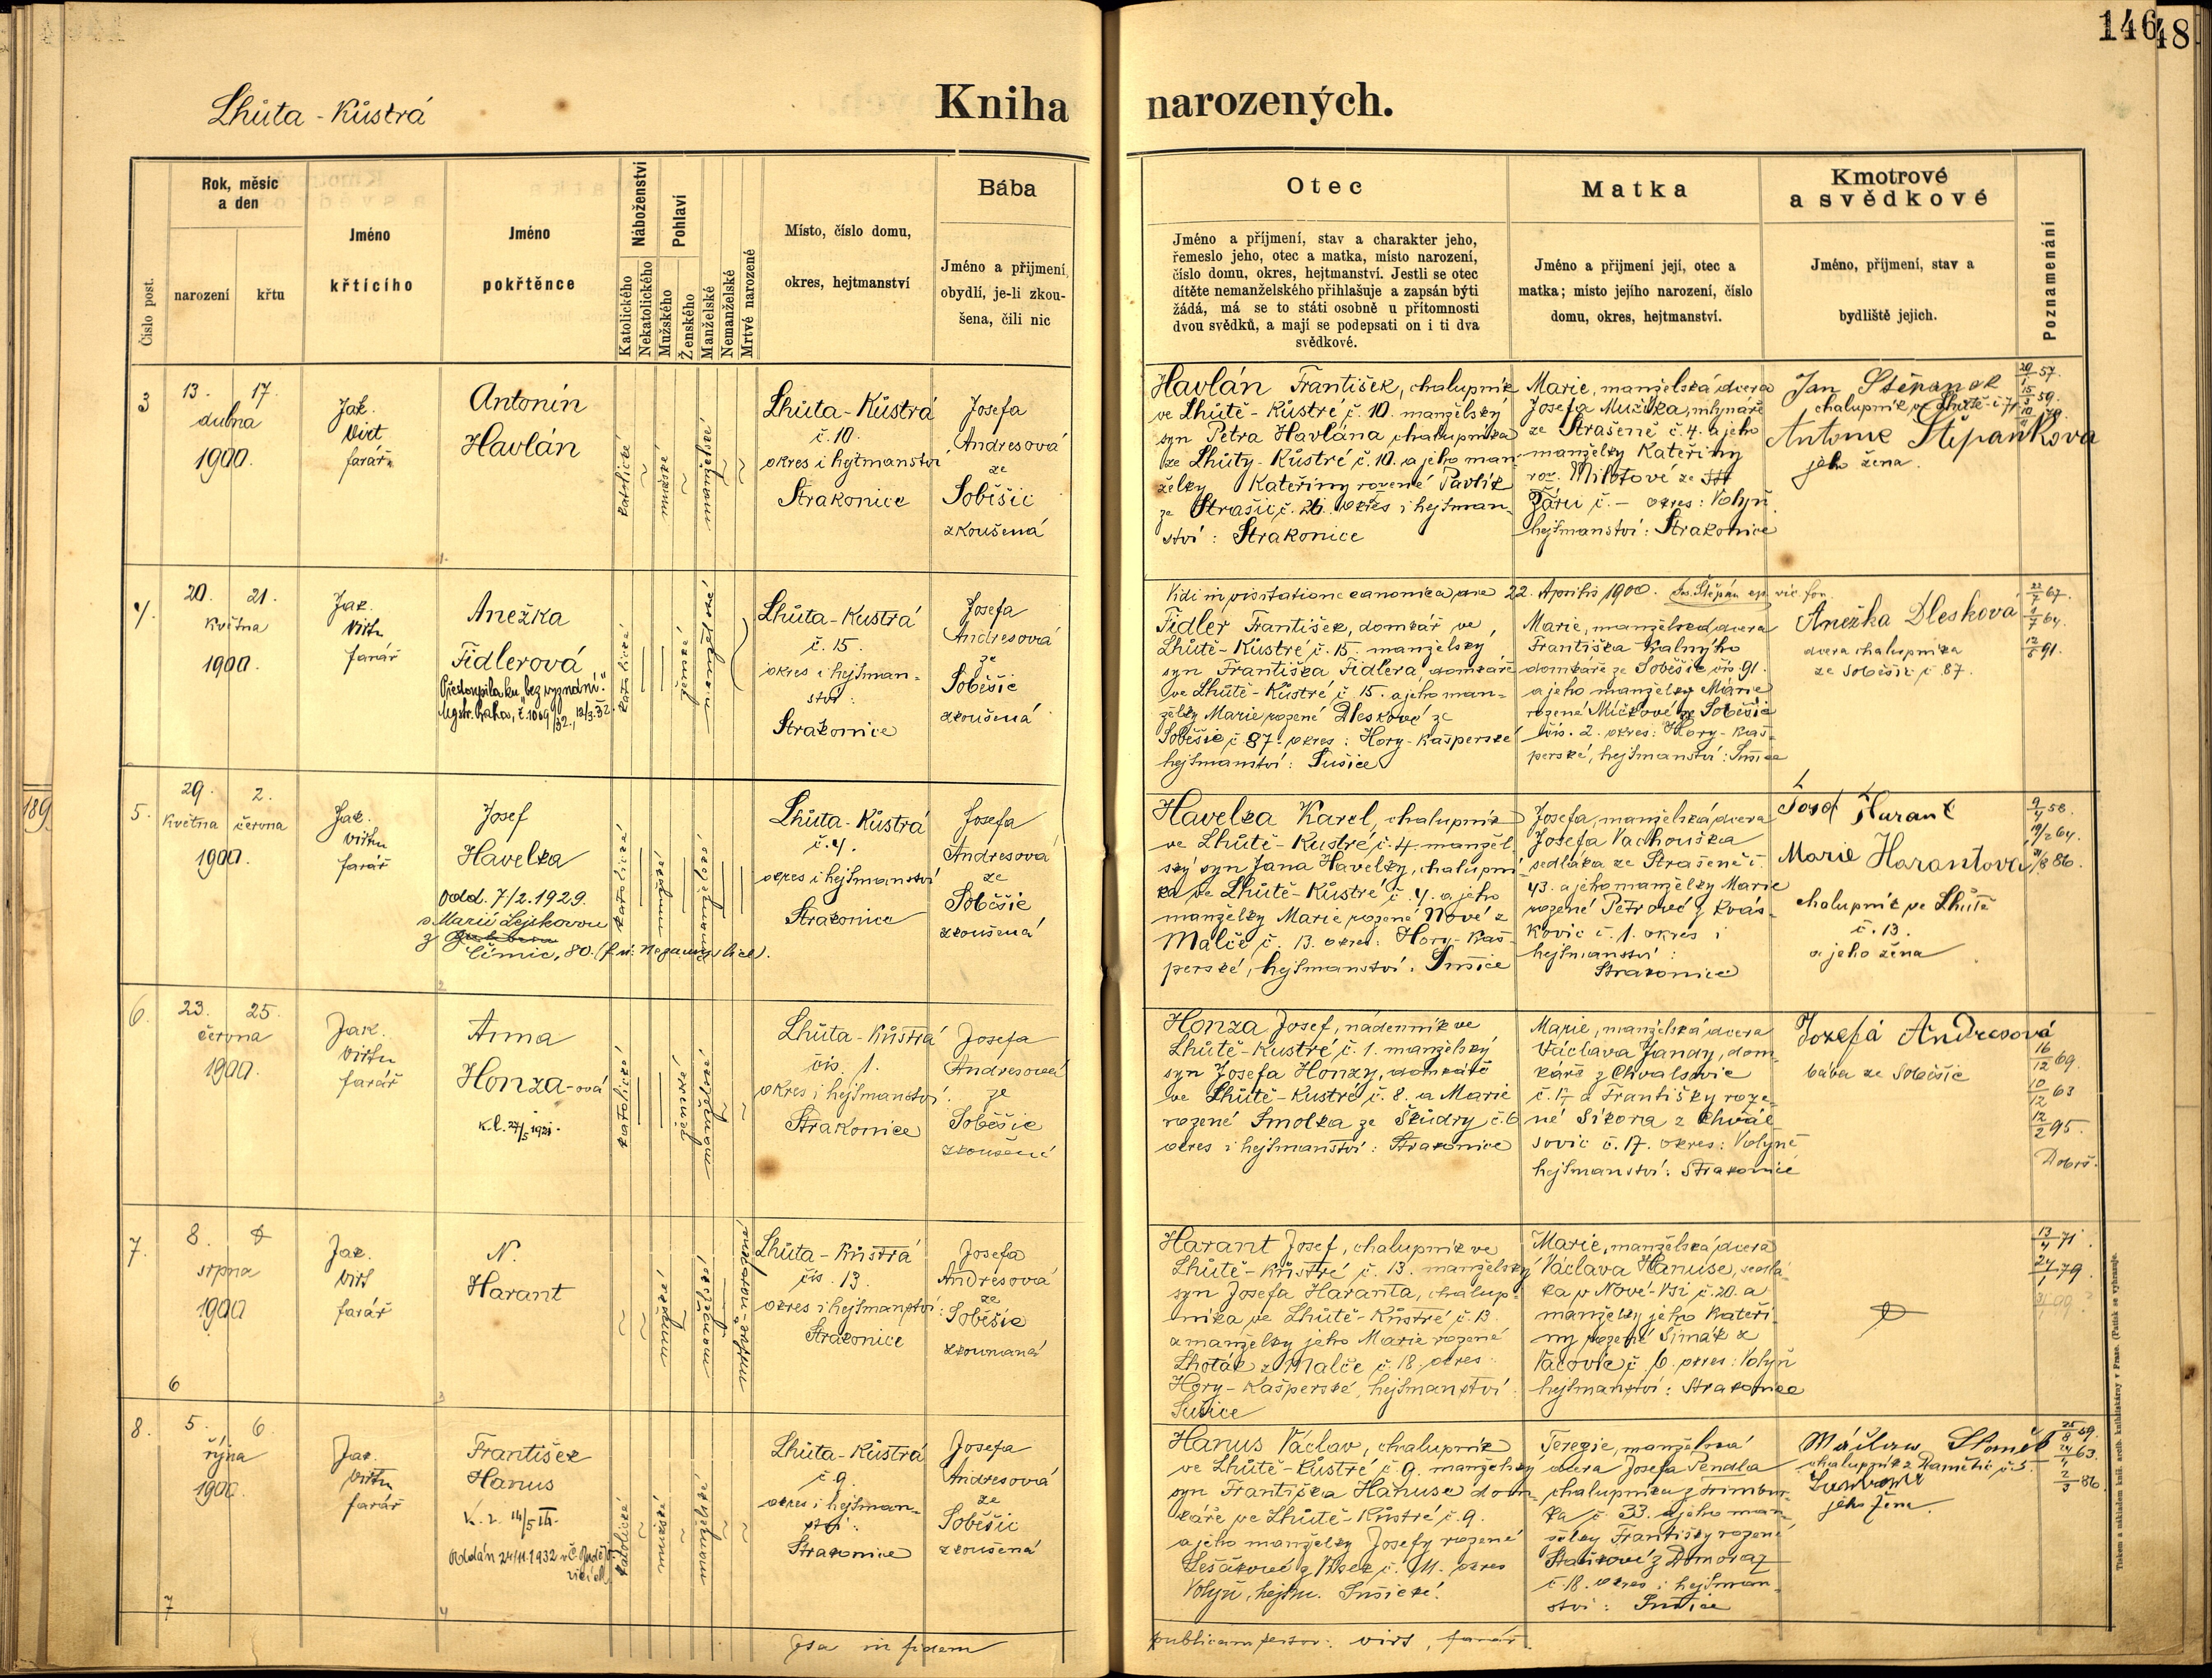 146
48
Lhůta - Kůstrá
Kniha narozených.
Číslo post.
Rok, měsíc
a den
narození
křtu
Jméno
křticího
Jméno
pokřtěnce
Náboženství
Katolického
Nekatolického
Pohlaví
Mužského
Ženského
Manželské
Nemanželské
Mrtvě narozené
Místo, číslo domu,
okres, hejtmanství
Bába
Jméno a přijmení,
obydlí, je-li zkou-
šena, čili nic
Otec
Jméno a příjmení, stav a charakter jeho,
řemeslo jeho, otec a matka, místo narození,
číslo domu, okres, hejtmanství. Jestli se otec
dítěte nemanželského přihlašuje a zapsán býti
žádá, má se to státi osobně u přítomnosti
dvou svědků, a mají se podepsati on i ti dva
svědkové.
Matka
Jméno a přijmení její, otec a
matka; místo jejího narození, číslo
domu, okres, hejtmanství.
Kmotrové
a svědkové
Jméno, příjmení, stav a
bydliště jejich.
Poznamenání
3
13. 17.
dubna
1900.
Jak.
Virt
farář
Antonín
Havlán
katolické
mužské
manželské
Lhůta - Kůstrá
č. 10.
okres i hejtmanství
Strakonice
Josefa
Andresová
ze
Soběšic
zkoušená
Havlán František, chalupník
ve Lhůtě - Kůstré č. 10. manželský
syn Petra Havlána chalupníka
ze Lhůty - Kůstré č. 10. a jeho man-
želky Kateřiny rozené Pavlík
ze Strašic č. 26. okres i hejtman-
ství: Strakonice
Marie, manželská dcera
Josefa Mužíka, mlynáře
ze Strašeně č. 4. a jeho
manželky Kateřiny
roz. Milotové ze
Žáru č. - okres: Volyň
hejtmanství: Strakonice
Jan Štěpánek
chalupník ve Lhůtě č. 7
Antonie Štěpánková
jeho žena.
4.
20. 21.
května
1900.
Jak.
Virt
farář
Anežka
Fidlerová
Předoupila ku "bez vyznání."
Mgstr. Praha, č. 1069/32., 12/3.32.
katolické
ženské
manželské
Lhůta - Kustrá
č. 15.
okres i hejtman-
ství:
Strakonice
Josefa
Andresová
ze
Soběšic
zkoušená
Vidi in visitatione canonica die 22. Aprilis 1900.
Fidler František, domkář ve
Lhůtě - Kůstré č. 15. manželský
syn Františka Fidlera, domkáře
ve Lhůtě - Kůstré č. 15. a jeho man-
želky Marie rozené Dleskové ze
Soběšic č. 87. okres: Hory - Kašperské
hejtmanství: Sušice
Marie, manželská dcera
Františka Kalného
domkáře ze Soběšic čís. 91.
a jeho manželky Marie
rozené Míčkové ze Soběšic
čís. 2. okres: Hory - Kaš-
perské, hejtmanství: Sušice
Anežka Dlesková
dcera chalupníka
ze Soběšic č. 87.
189
5.
29. 2.
května června
1900.
Jak.
Virt
farář
Josef
Havelka
Odd. 7/2. 1929.
s Marií Lejskovou
z
Čímic, 80.
katolické
mužské
manželské
Lhůta - Kůstrá
č. 4.
okres i hejtmanství
Strakonice
Josefa
Andresová
ze
Soběšic
zkoušená
Havelka Karel, chalupník
ve Lhůtě - Kustré č. 4. manžel-
ský syn Jana Havelky, chalupní
ka ve Lhůtě - Kůstré č. 4. a jeho
manželky Marie rozené Nové z
Malče č. 13. okres: Hory - Kaš-
perské, hejtmanství: Sušice
Josefa, manželská dcera
Josefa Vachouška
sedláka ze Strašeně č.
43. a jeho manželky Marie
rozené Petrové z Kvás-
kovic č. 1. okres i
hejtmanství:
Strakonice
Josef Harant
Marie Harantová
chalupník ve Lhůtě
č. 13.
a jeho žena
6.
23. 25.
června
1900.
Jak.
Virt
farář
Anna
Honza-ová
k.l. 27/5 1921.
katolické
ženské
manželské
Lhůta - Kůstrá
čís. 1.
okres i hejtmanství:
Strakonice
Josefa
Andresová
ze
Soběšic
zkoušená
Honza Josef, nádenník ve
Lhůtě - Kustré č. 1. manželský
syn Josefa Honzy, domkáře
ve Lhůtě - Kustré č. 8. a Marie
rozené Smolka ze Škůdry č. 6
okres i hejtmanství: Strakonice
Marie, manželská dcera
Václava Jandy, dom-
káře z Chvalšovic
č. 17 a Františky roze-
né Sikora z Chval-
šovic č. 17. okres: Volyně
hejtmanství: Strakonice
Jozefa Andresová
bába ze Soběšic
16/12 69.
10/12 63
12/2 95.
Dobrš.
7.
8.
srpna
1900
Jak.
Virt
farář
N.
Harant
mužské
manželské
mrtvo-narozené
Lhůta - Kůstrá
čís. 13.
okres i hejtmanství:
Strakonice
Josefa
Andresová
ze
Soběšic
zkoumaná
Harant Josef, chalupník ve
Lhůtě - Kůstré č. 13. manželský
syn Josefa Haranta, chalup-
níka ve Lhůtě - Kůstré č. 13
a manželky jeho Marie rozené
Lhoták z Malče č. 18. okres:
Hory - Kašperské, hejtmanství:
Sušice
Marie, manželská dcera
Václava Hanuse, sedlá-
ka v Nové-Vsi č. 20. a
manželky jeho Kateři-
ny rozené Šimák z
Vacovic č. 6. okres: Volyň
hejtmanství: Strakonice
13/4 71.
24/1 79.
6
8.
5. 6.
října
1900.
Jak.
Virt
farář
František
Hanus
Oddán 24/11.1932 v Č. Buděj-
katolické
mužské
manželské
Lhůta - Kůstrá
č. 9.
okres i hejtman-
ství:
Strakonice
Josefa
Andresová
ze
Soběšic
zkoušená
Hanus Václav, chalupník
ve Lhůtě - Kůstré č. 9. manželský
syn Františka Hanuse dom-
káře ve Lhůtě - Kůstré č. 9.
a jeho manželky Josefy rozené
Lešákové z Vlsek č. 11. okres
Volyň, hejtm. Sušické.
Terezie, manželská
dcera Josefa Pendla
chalupníka z Frimbur-
ka č. 33. a jeho man-
želky Františky rozené
Staňkové z Domoraz
č. 18. okres i hejtman-
ství: Sušice
chalupník z Damětic č. 5.
jeho žena
7
in fidem
publicam Virt, farář.
Tiskem a nákladem kníž. arcib. knihtiskárny v Praze. (Patisk se vyhrazuje.